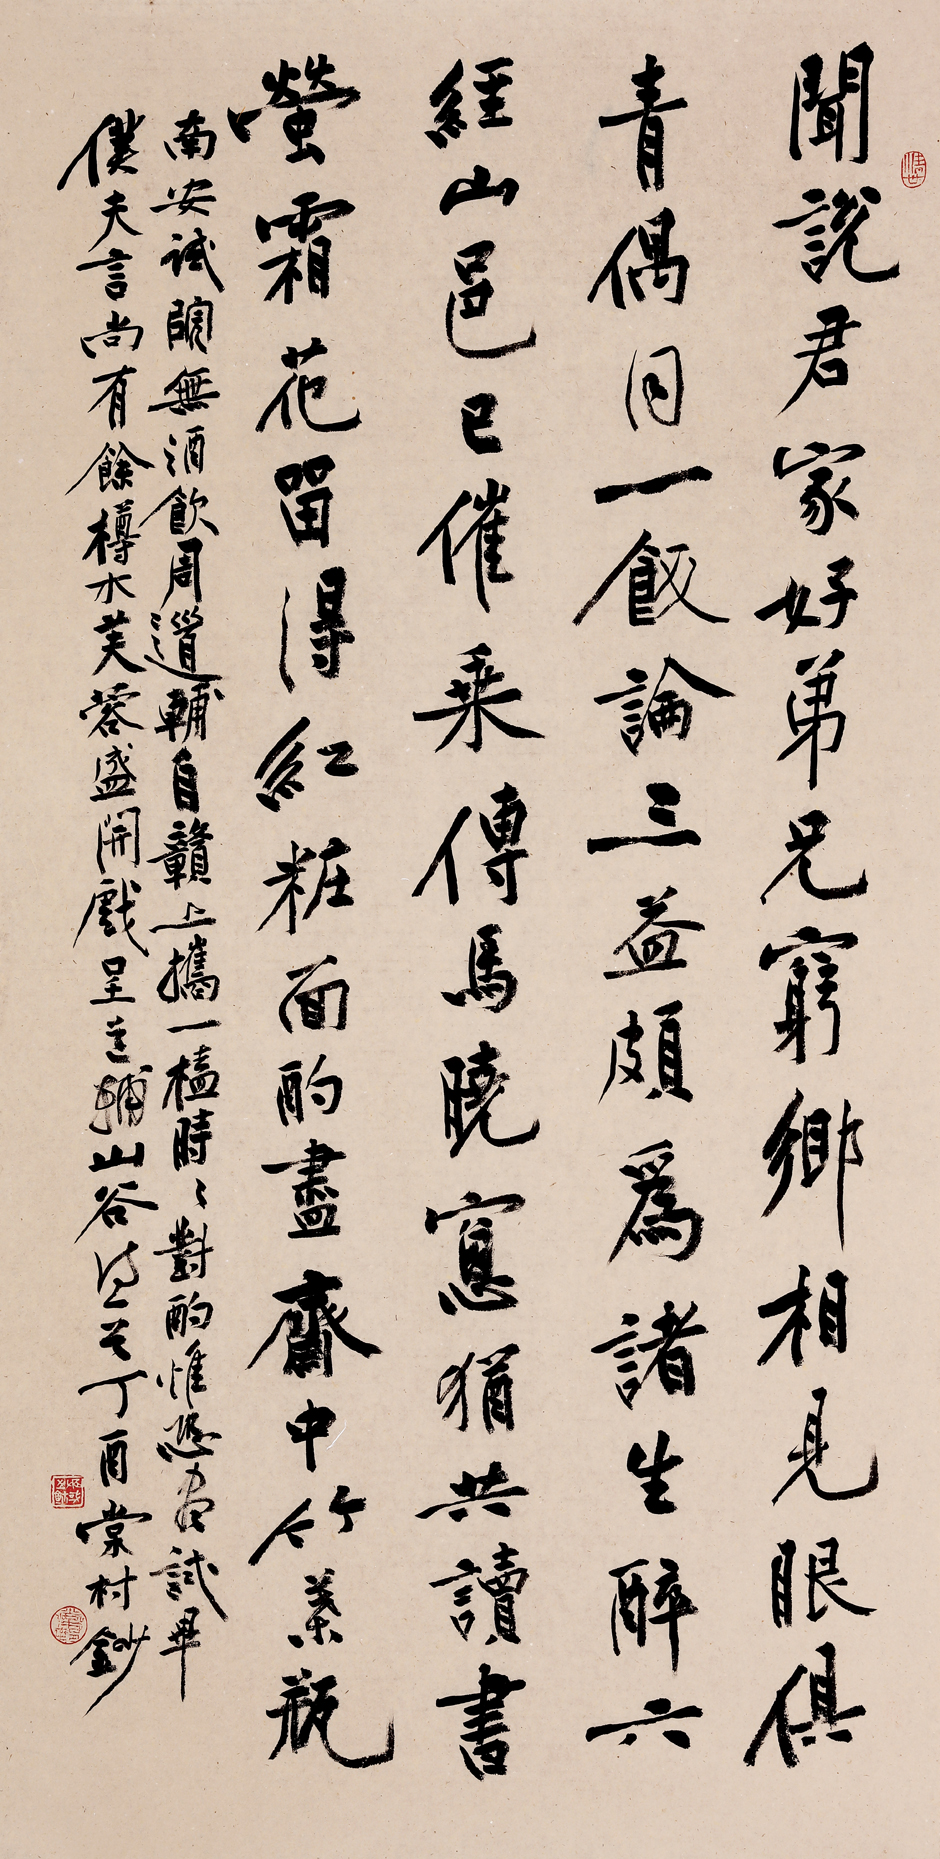 聞說君家好弟兄窮鄉相見眼俱
青偶同一飯論三益頗爲諸生醉六
經山邑已催乘傳馬曉窻猶共讀書
螢霜花留得紅粧面酌盡齋中竹葉瓶
南安試院無酒飲周道輔自贛上攜一榼時〻對酌惟恐盡試畢
僕夫言尚有餘樽木芙蓉盛開戲呈道輔山谷詩天丁酉棠村鈔